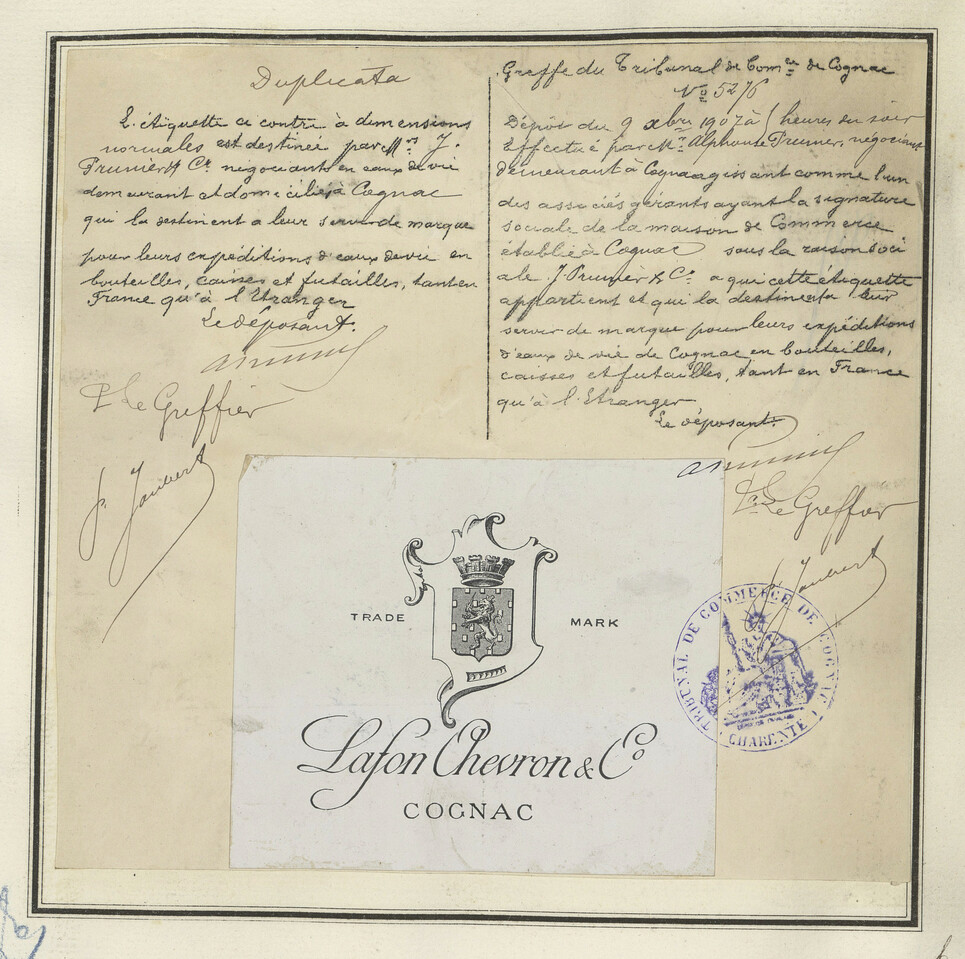 Duplicata
L'étiquette ci contre à dimensions
normales est destinée par Mrs J.
Prunier & Cie négociants en eaux de vie
demeurant et domiciliés à Cognac
qui la destinent a leur servir de marque
pour leurs expéditions d'eaux de vie en
bouteilles, caisses et futailles, tant en
France qu'à l'Etranger
Le déposant.
P. Le Greffier
Greffe du Tribunal de Comce de Cognac
No 5276
Dépôt du 9 xbre 1907 à heures du soir
Effectué par Mr Alphonse Prunier, négociant
demeurant à Cognac agissant comme l'un
des associés gérants ayant la signature
sociale de la maison de Commerce
établie à Cognac sous la raison soci
ale J. Prunier & Co a qui cette étiquette
appartient et qui la destine à leur
servir de marque pour leurs expéditions
d'eaux de vie de Cognac en bouteilles,
caisses et futailles, tant en France
qu'à l'Etranger
Le déposant.
Le Greffier
J. Joubert
TRADE MARK
Lafon Chevron & Co
COGNAC
TRIBUNAL DE COMMERCE DE COGNAC
CHARENTE